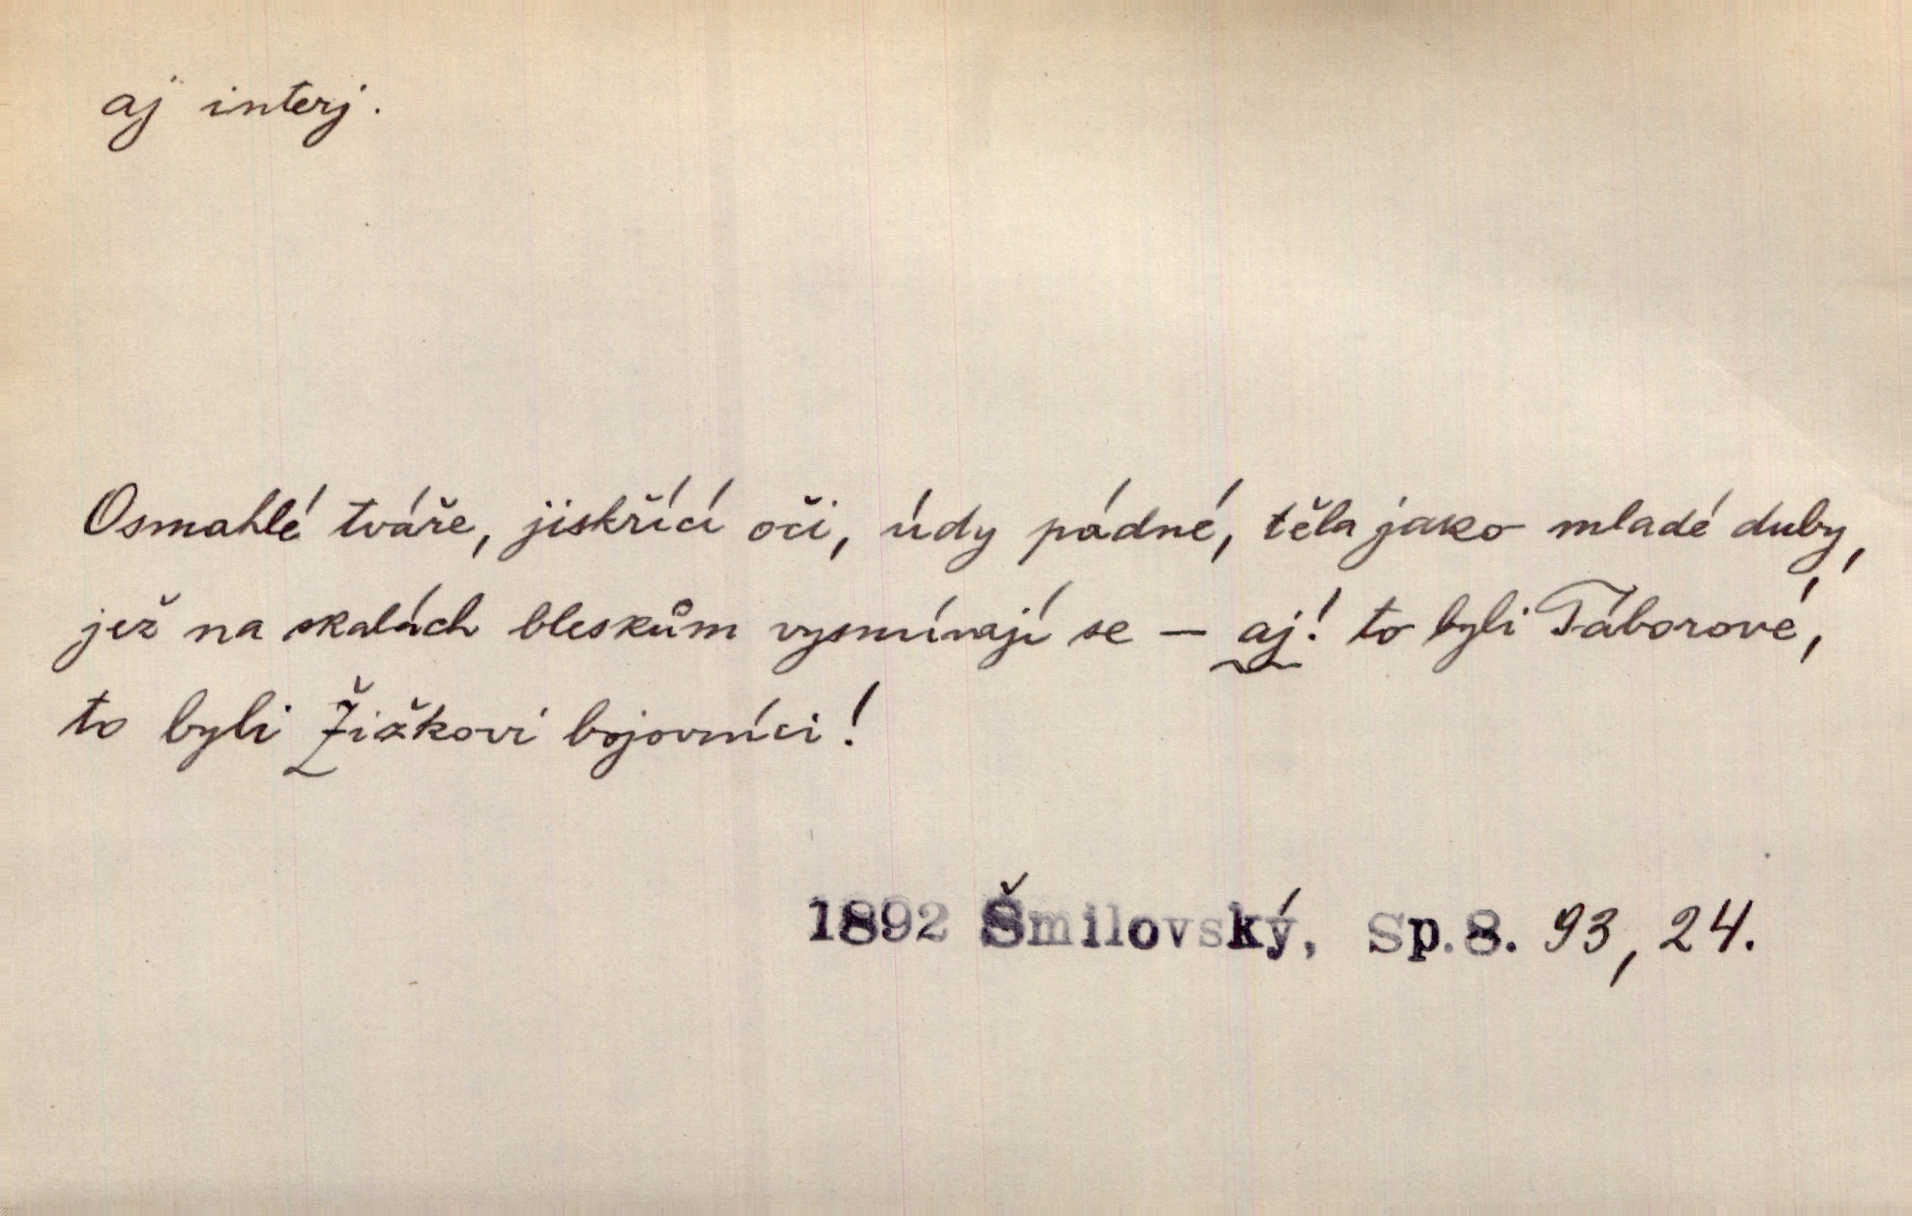 aj interj.
Osmahlé tváře, jiskřící oči, údy pádné, těla jako mladé duby,
jež na skalách bleskům vysmívají se – aj! to byli Táborové,
to byli Žižkovi bojovníci!
1892 Šmilovský, Sp.8. 93, 24.